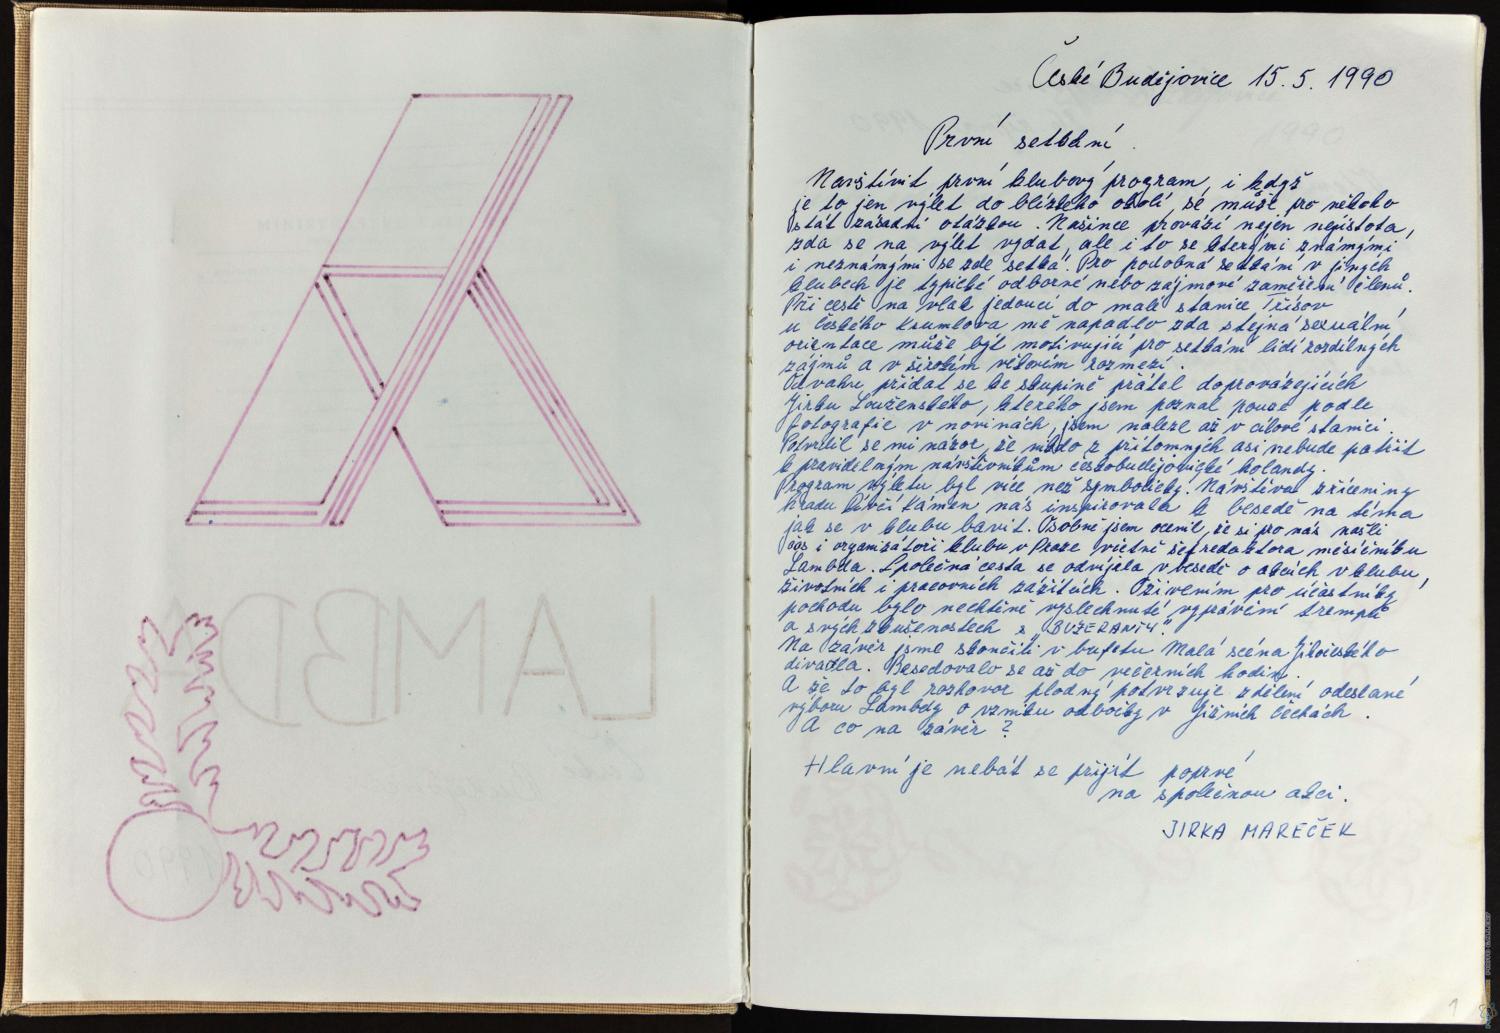 České Budějovice 15. 5. 1990
První setkání.
Navštívit první klubový program, i když
je to jen výlet do blízkého okolí, se může pro někoho
stát zásadní otázkou. Našince provází nejen nejistota,
zda se na výlet vydat, ale i to se kterými známými
i neznámými se zde setká. Pro podobná setkání v jiných
klubech je typické odborné nebo zájmové zaměření členů.
Při cestě na vlak jedoucí do malé stanice Třísov
u Českého Krumlova mě napadlo zda stejná sexuální
orientace může být motivující pro setkání lidí rozdílných
zájmů a v širokém věkovém rozmezí.
Odvahu přidat se ke skupině přátel doprovázejících
Jirku Louženského, kterého jsem poznal pouze podle
fotografie v novinách, jsem nalezl až v cílové stanici.
Potvrdil se mi názor, že nikdo z přítomných asi nebude patřit
k pravidelným návštěvníkům českobudějovické holandy.
Program výletu byl více než symbolický. Návštěva zříceniny
hradu Dívčí Kámen nás inspirovala k besedě na téma
jak se v klubu bavit. Osobně jsem ocenil, že si pro nás našli
čas i organizátoři klubu v Praze včetně šefredaktora měsíčníku
Lambda. Společná cesta se odvíjela v besedě o akcích v klubu,
životních i pracovních zážitcích. Oživením pro účastníky
pochodu bylo nechtěně vyslechnuté vyprávění trempů
o svých zkušenostech s „BUZERANTY".
Na závěr jsme skončili v bufetu Malá scéna Jihočeského
divadla. Besedovalo se až do večerních hodin.
A že to byl rozhovor plodný potvrzuje sdělení odeslané
výboru Lambdy o vzniku odbočky v Jižních Čechách.
A co na závěr?
Hlavní je nebát se přijít poprvé
na společnou akci.
JIRKA MAREČEK
1